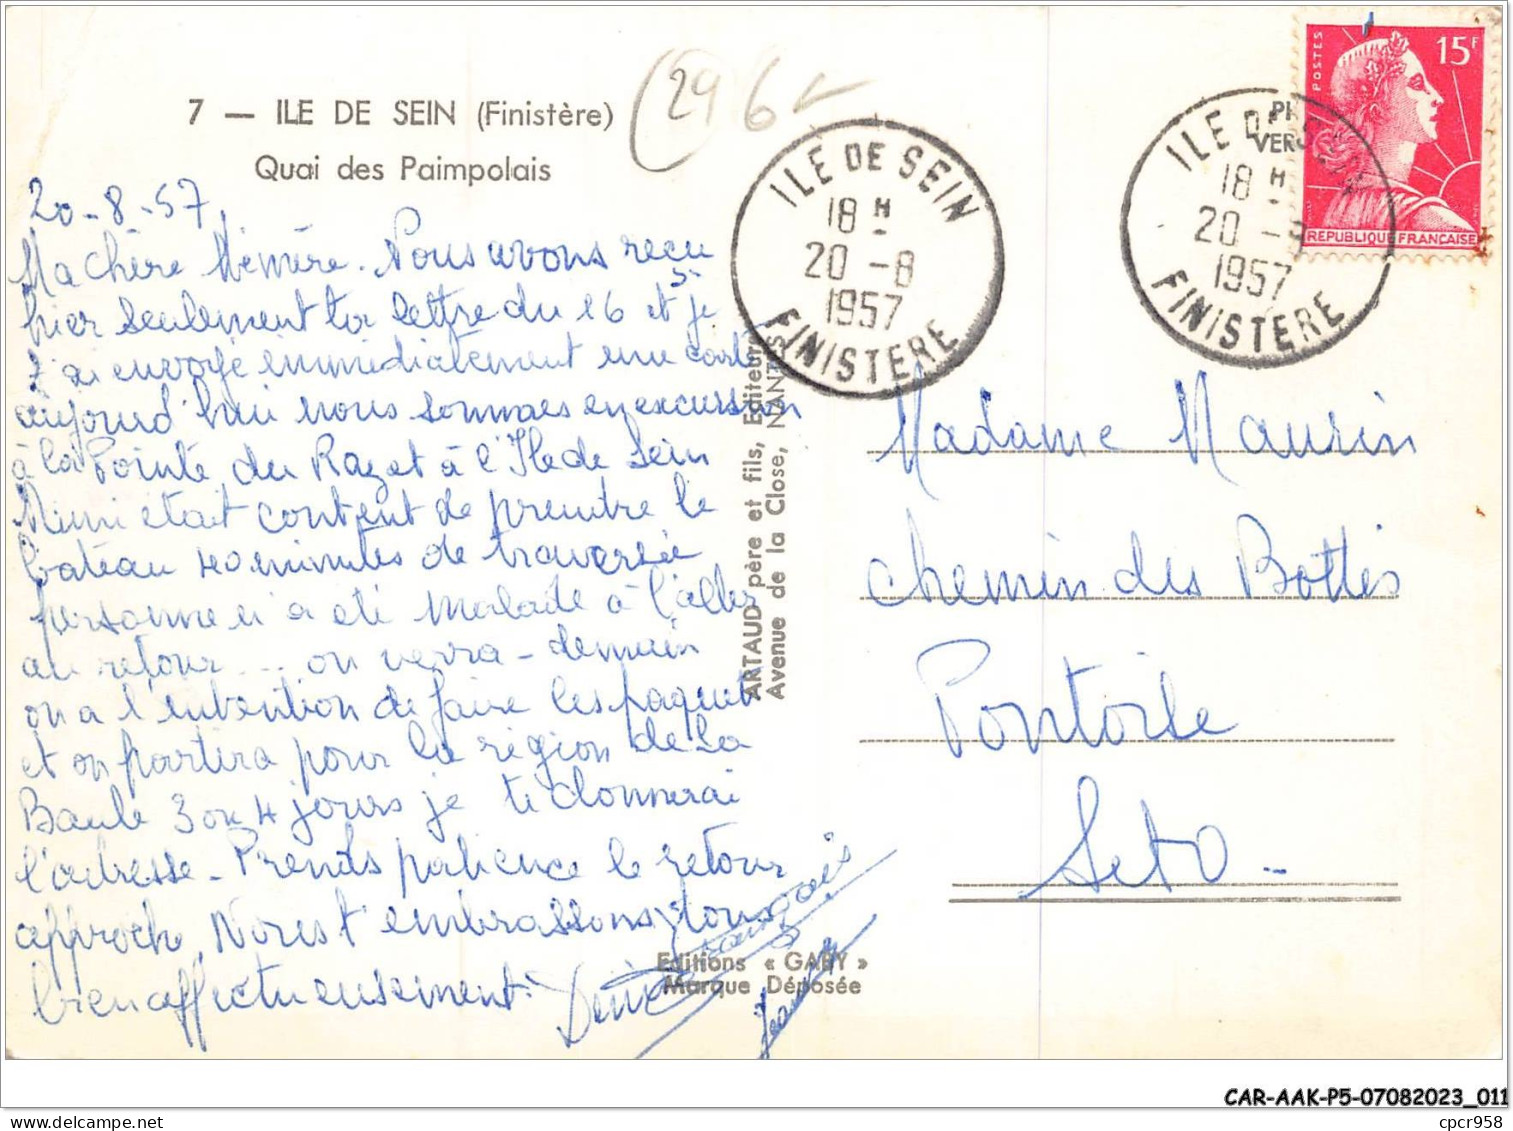 7 — ILE DE SEIN (Finistère)
Quai des Paimpolais
29 6
20-8-57
Ma chère Mémère. Nous avons reçu
hier seulement ta lettre du 16 et je
t'ai envoyé immédiatement une carte
aujourd'hui nous sommes en excursion
à la Pointe du Raz et à l'Ile de Sein
Mimi etait content de prendre le
bateau 40 minutes de traversée
personne n'a eté malade à l'aller
au retour ... on verra - demain
on a l'intention de faire les paquets
et on partira pour la région de La
Baule 3 ou 4 jours je te donnerai
l'adresse - Prends patience le retour
approche. Nous t'embrassons tous
bien affectueusement.
Denise
François
Jean
ILE DE SEIN
18 H
20 -8
1957
FINISTERE
ILE DE SEIN
18 H
20 -8
1957
FINISTERE
POSTES
15F
REPUBLIQUE FRANCAISE
ARTAUD père et fils, Editeurs
Avenue de la Close, NANTES
Madame Maurin
chemin des Bottes
Pontoile
Set O -
Editions « GABY »
Marque Déposée
CAR-AAK-P5-07082023_011
delcampe.net
cpcr958